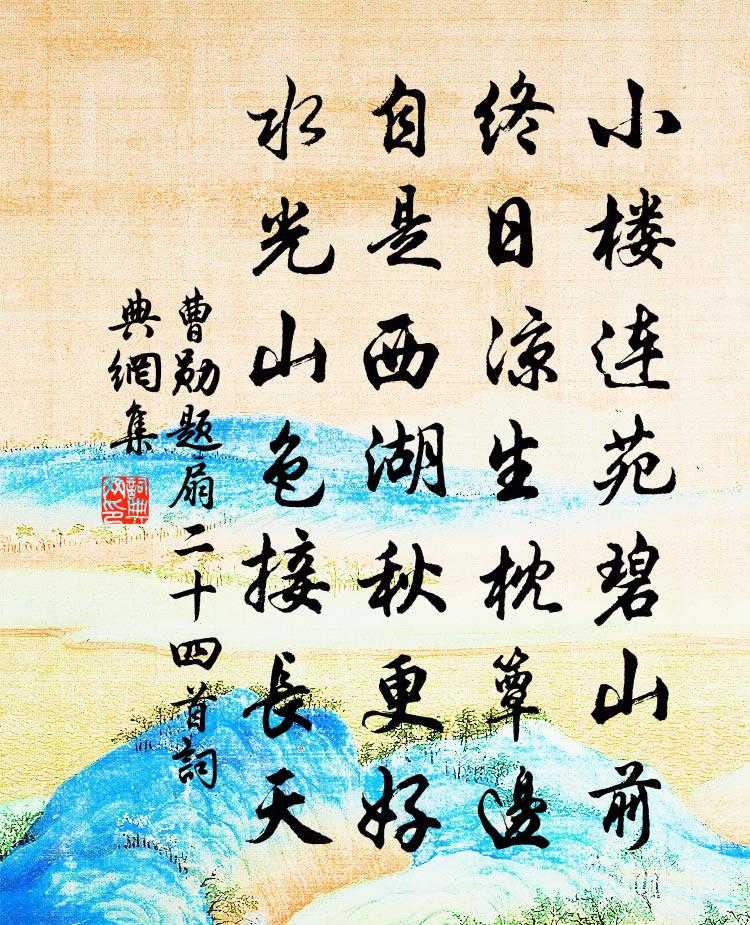 小楼连苑碧山前
终日凉生枕簟邊
自是西湖秋更好
水光山色接長天
曹勋题扇二十四首詞
典網集
詞典